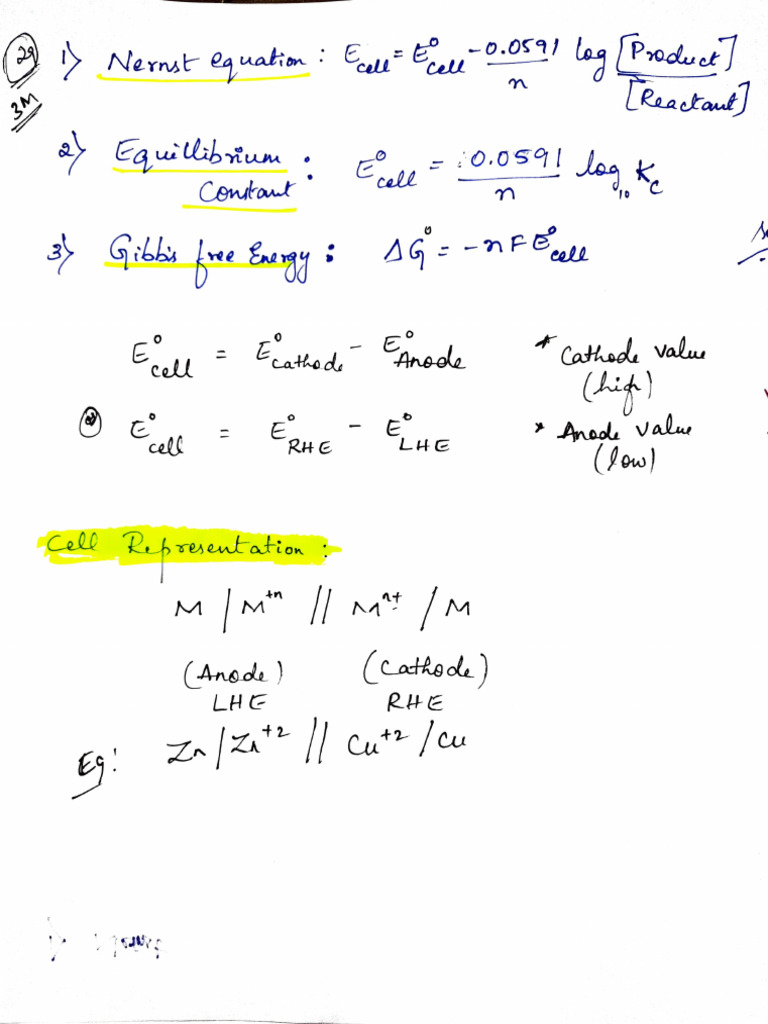 29 1) Nernst equation : E cell = E° cell - 0.0591/n log [Product]/[Reactant]
3M
2) Equillibrium Constant : E° cell = 0.0591/n log₁₀ Kc
3) Gibbis free Energy : ΔG° = -nFE° cell
E° cell = E° Cathode - E° Anode * Cathode value (high)
E° cell = E° RHE - E° LHE * Anode value (low)
Cell Representation :
M / M⁺ⁿ // Mⁿ⁺ / M
(Anode) (Cathode)
LHE RHE
Eg: Zn / Zn⁺² // Cu⁺² / Cu